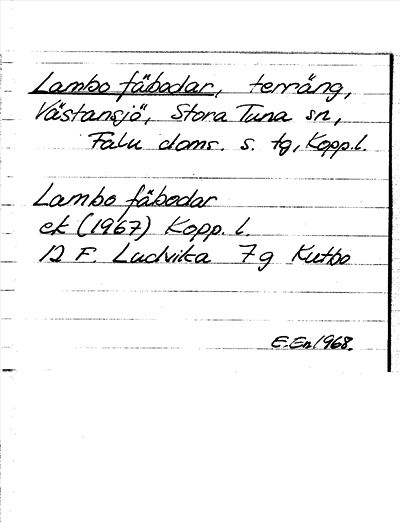 Lambo fäbodar, terräng,
Västansjö, Stora Tuna sn,
Falu doms. s. tg, Kopp.l.
Lambo fäbodar
ek (1967) Kopp. l.
12 F. Ludvika 7g Kutbo
E.En 1968.